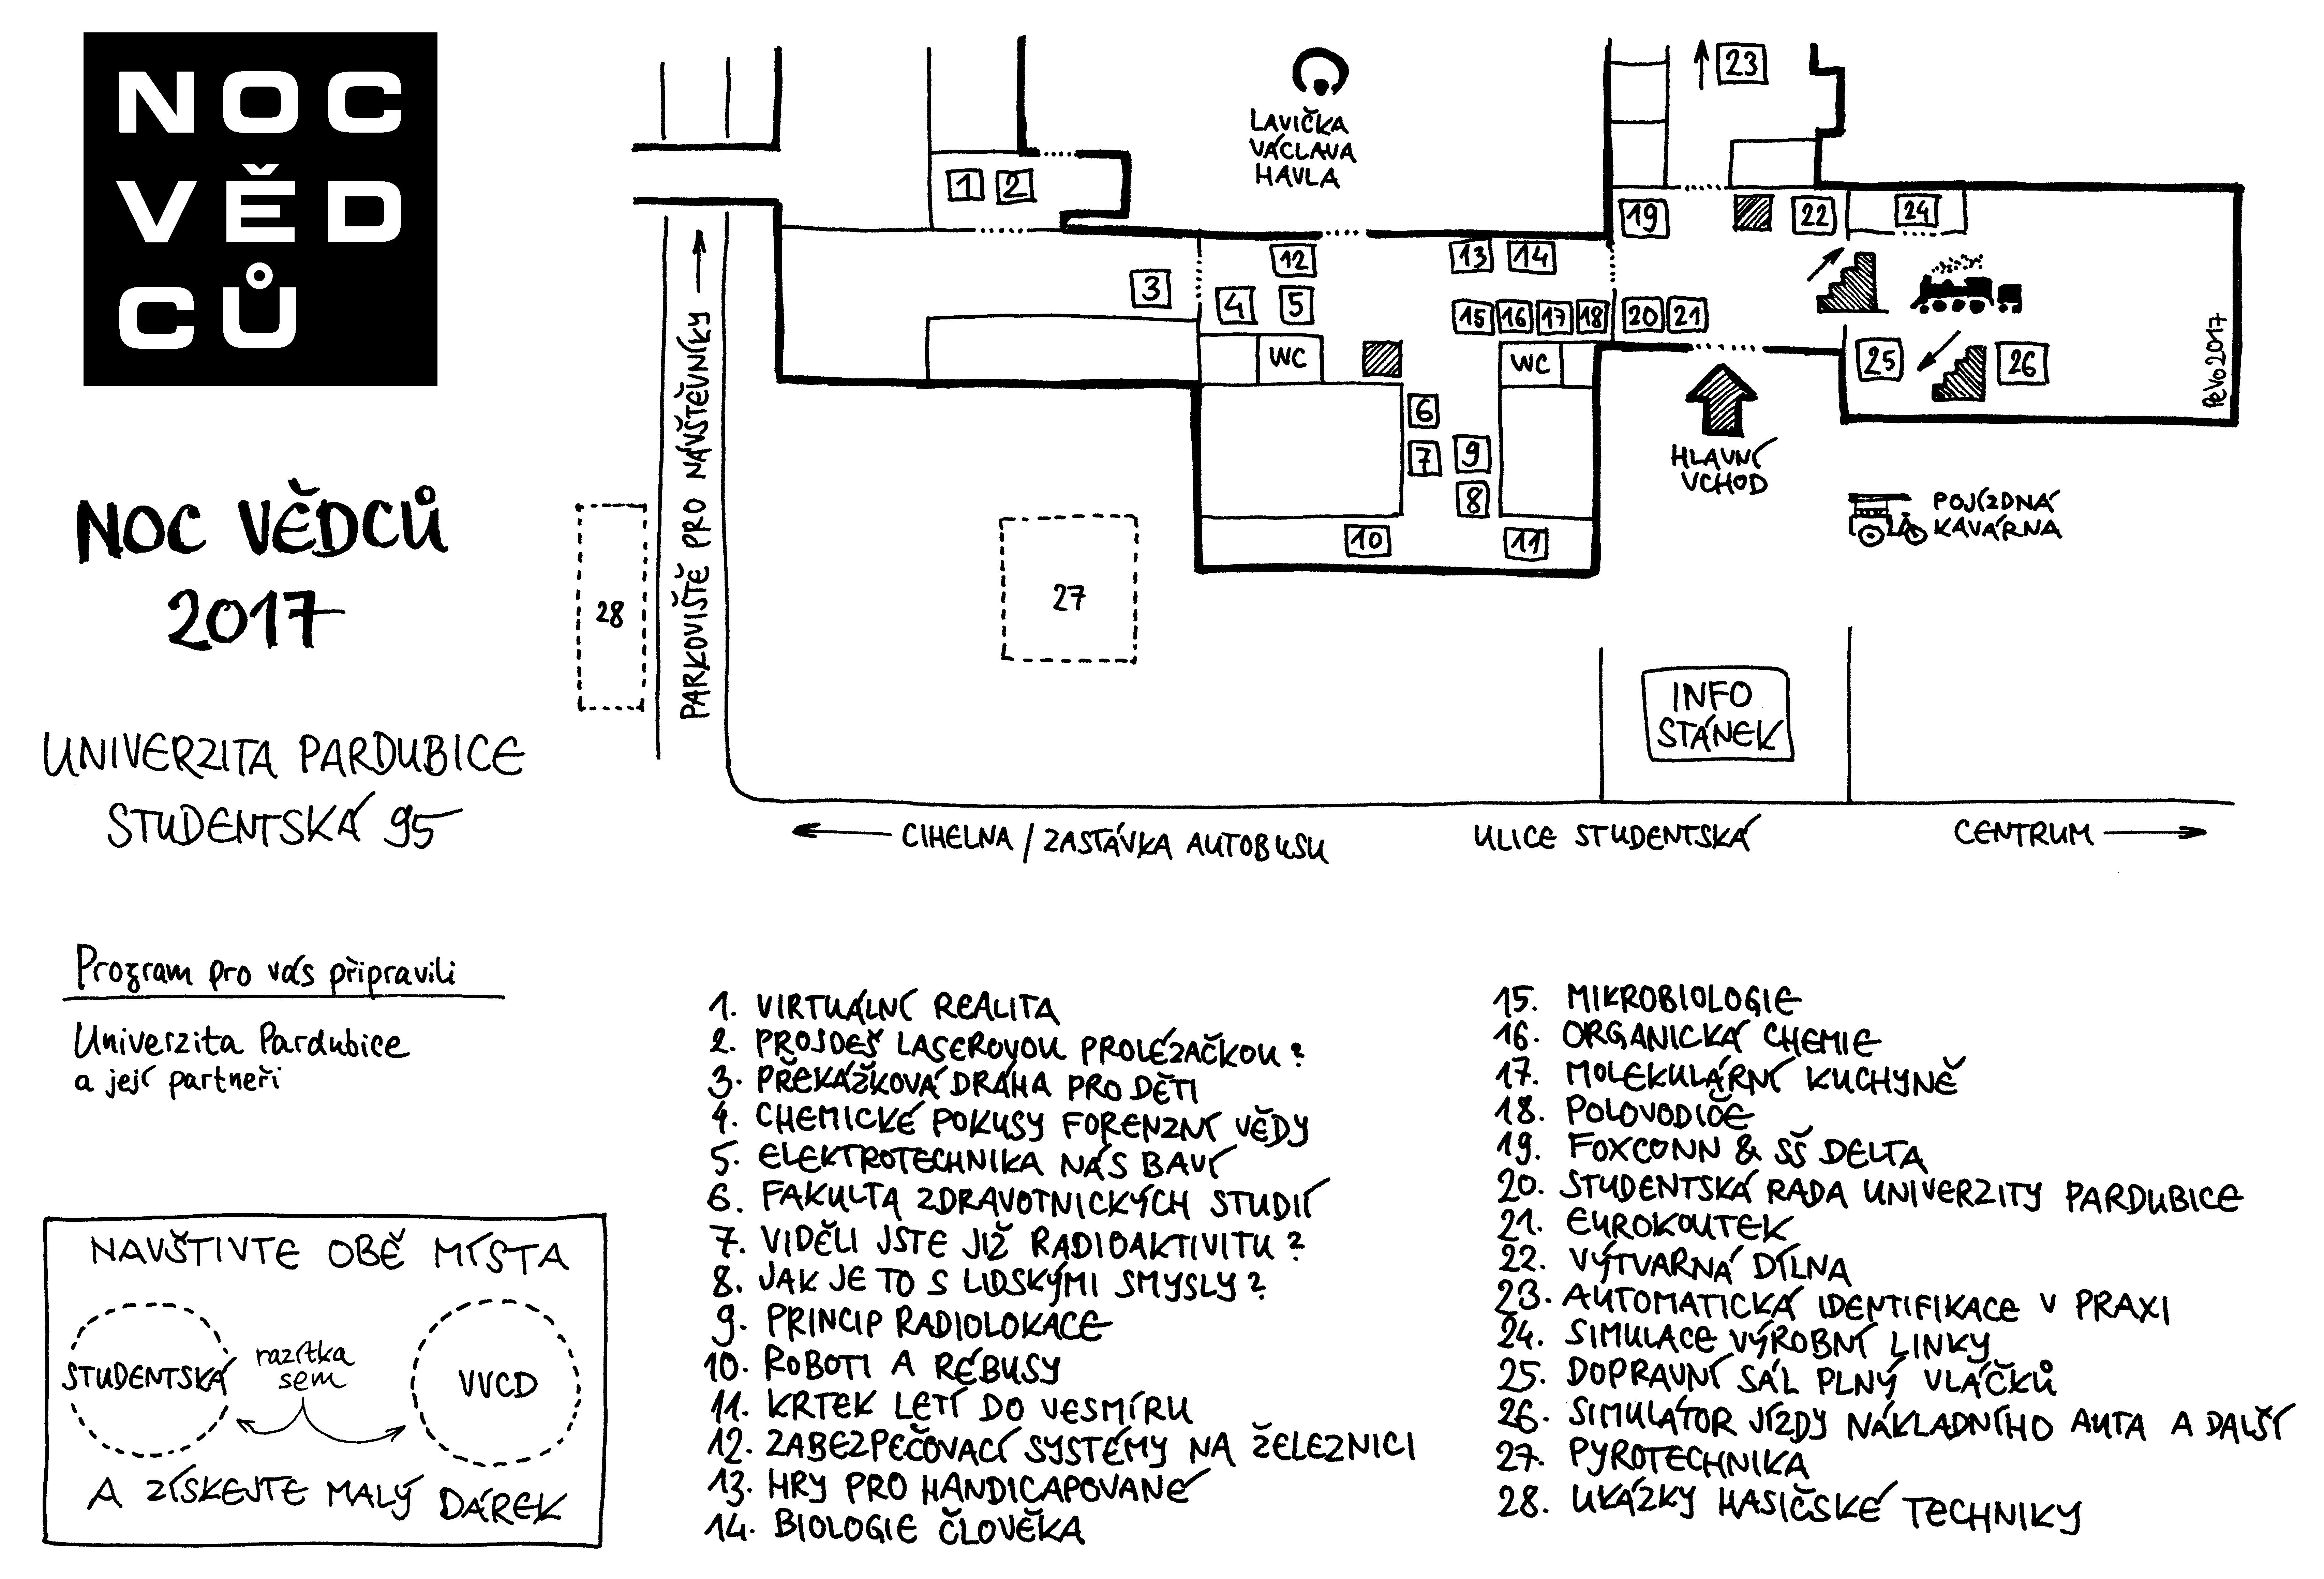 NOC
VĚD
CŮ
NOC VĚDCŮ
2017
UNIVERZITA PARDUBICE
STUDENTSKÁ 95
LAVIČKA
VÁCLAVA
HAVLA
23
1 2
19 22 24
12 13 14
3 4 5
15 16 17 18 20 21
WC
WC
25 26
PeVo2017
6
7 9
8
10 11
HLAVNÍ
VCHOD
POJÍZDNÁ
KAVÁRNA
PARKOVIŠTĚ PRO NÁVŠTĚVNÍKY
28
27
INFO
STÁNEK
CIHELNA / ZASTÁVKA AUTOBUSU
ULICE STUDENTSKÁ
CENTRUM
Program pro vás připravili
Univerzita Pardubice
a její partneři
NAVŠTIVTE OBĚ MÍSTA
STUDENTSKÁ
razítka
sem
VVCD
A ZÍSKEJTE MALÝ DÁREK
1. VIRTUÁLNÍ REALITA
2. PROJDEŠ LASEROVOU PROLÉZAČKOU?
3. PŘEKÁŽKOVÁ DRÁHA PRO DĚTI
4. CHEMICKÉ POKUSY FORENZNÍ VĚDY
5. ELEKTROTECHNIKA NÁS BAVÍ
6. FAKULTA ZDRAVOTNICKÝCH STUDIÍ
7. VIDĚLI JSTE JIŽ RADIOAKTIVITU?
8. JAK JE TO S LIDSKÝMI SMYSLY?
9. PRINCIP RADIOLOKACE
10. ROBOTI A RÉBUSY
11. KRTEK LETÍ DO VESMÍRU
12. ZABEZPEČOVACÍ SYSTÉMY NA ŽELEZNICI
13. HRY PRO HANDICAPOVANÉ
14. BIOLOGIE ČLOVĚKA
15. MIKROBIOLOGIE
16. ORGANICKÁ CHEMIE
17. MOLEKULÁRNÍ KUCHYNĚ
18. POLOVODIČE
19. FOXCONN & SŠ DELTA
20. STUDENTSKÁ RADA UNIVERZITY PARDUBICE
21. EUROKOUTEK
22. VÝTVARNÁ DÍLNA
23. AUTOMATICKÁ IDENTIFIKACE V PRAXI
24. SIMULACE VÝROBNÍ LINKY
25. DOPRAVNÍ SÁL PLNÝ VLÁČKŮ
26. SIMULÁTOR JÍZDY NÁKLADNÍHO AUTA A DALŠÍ
27. PYROTECHNIKA
28. UKÁZKY HASIČSKÉ TECHNIKY